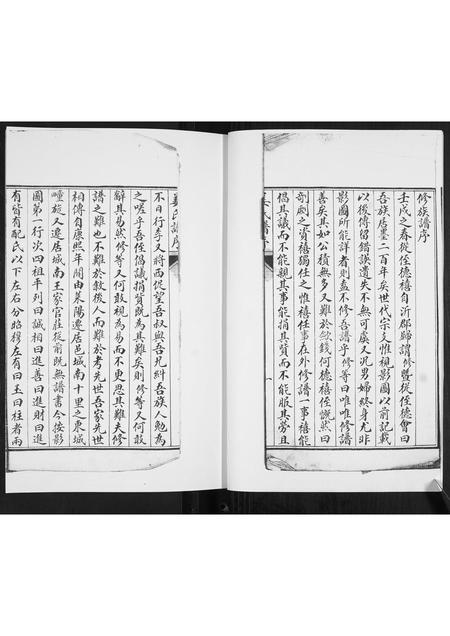 修族譜序
壬戌之春從侄德禧自沂郡歸謂修豐從侄德會曰
吾族居墨二百年矣世代宗支惟視影圖以前記載
以後傳留錯誤遺失不無可虞又況男婦終身尤非
影圖所能詳者則盍不修吾譜乎修等曰唯唯修譜
善矣其如公積無多又難於歛錢何德禧侄慨然曰
剞劂之資禧獨任之惟禧任事在外修譜一事禧能
倡其議而不能親其事能捐其資而不能服其勞且
不日行李又將西促望吾叔與吾兄糾吾族人勉為
之嗟乎吾侄倡議捐資既為其難矣則修等又何敢
辭其易然修等又何敢視為易而不更思其難夫修
譜之難也不難於敘後人而難於考先世吾家先世
相傳自康熙年間由萊陽遷居邑城南十里之東城
疃旋又遷居城南王家官莊從前既無譜書今按影
圖第一行次四祖平列曰誠相曰進善曰進財曰進
有皆有配氏以下左右分昭穆左有曰玉曰柱者兩
氏譜序